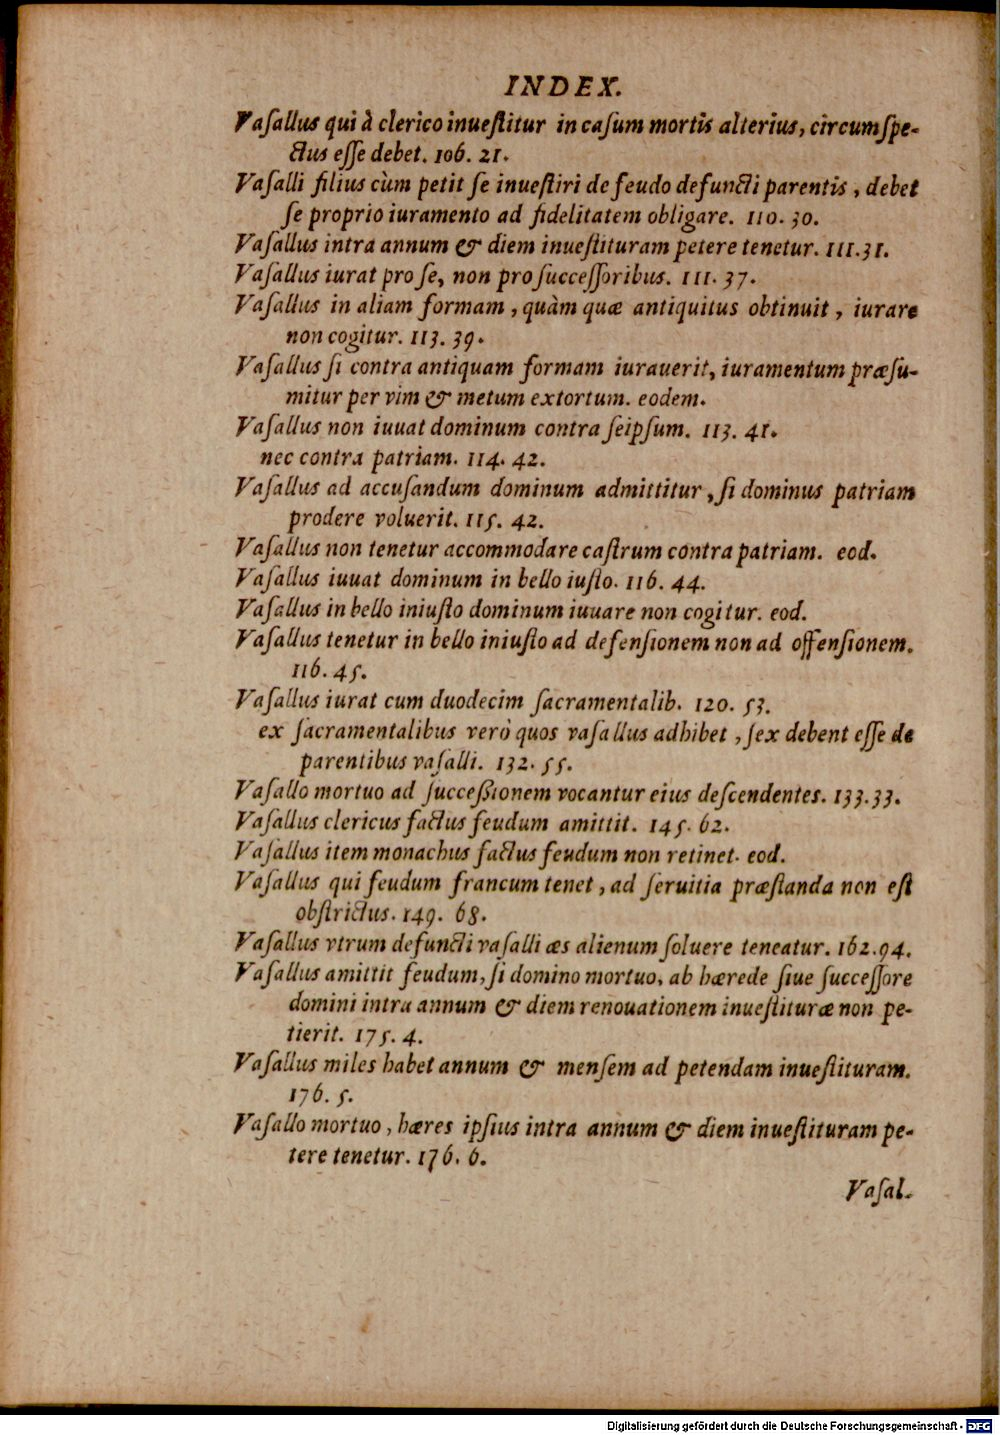 INDEX.
Vaſallus qui à clerico inueſtitur in caſum mortis alterius, circumſpe-
ctus eſſe debet. 106. 21.
Vaſalli filius cùm petit ſe inueſtiri de feudo defuncti parentis, debet
ſe proprio iuramento ad fidelitatem obligare. 110. 30.
Vaſallus intra annum & diem inueſtituram petere tenetur. 111. 31.
Vaſallus iurat pro ſe, non pro ſucceſſoribus. 111. 37.
Vaſallus in aliam formam, quàm quæ antiquitus obtinuit, iurare
non cogitur. 113. 39.
Vaſallus ſi contra antiquam formam iurauerit, iuramentum præſu-
mitur per vim & metum extortum. eodem.
Vaſallus non iuuat dominum contra ſeipſum. 113. 41.
nec contra patriam. 114. 42.
Vaſallus ad accuſandum dominum admittitur, ſi dominus patriam
prodere voluerit. 115. 42.
Vaſallus non tenetur accommodare caſtrum contra patriam. eod.
Vaſallus iuuat dominum in bello iuſto. 116. 44.
Vaſallus in bello iniuſto dominum iuuare non cogitur. eod.
Vaſallus tenetur in bello iniuſto ad defenſionem non ad offenſionem.
116. 45.
Vaſallus iurat cum duodecim ſacramentalib. 120. 53.
ex ſacramentalibus verò quos vaſallus adhibet, ſex debent eſſe de
parentibus vaſalli. 132. 55.
Vaſallo mortuo ad ſucceßionem vocantur eius deſcendentes. 133. 33.
Vaſallus clericus factus feudum amittit. 145. 62.
Vaſallus item monachus factus feudum non retinet. eod.
Vaſallus qui feudum francum tenet, ad ſeruitia præſtanda non eſt
obſtrictus. 149. 68.
Vaſallus vtrum defuncti vaſalli æs alienum ſoluere teneatur. 162. 94.
Vaſallus amittit feudum, ſi domino mortuo, ab hærede ſiue ſucceſſore
domini intra annum & diem renouationem inueſtituræ non pe-
tierit. 175. 4.
Vaſallus miles habet annum & menſem ad petendam inueſtituram.
176. 5.
Vaſallo mortuo, hæres ipſius intra annum & diem inueſtituram pe-
tere tenetur. 176. 6.
Vaſal-
Digitalisierung gefördert durch die Deutsche Forschungsgemeinschaft - DFG